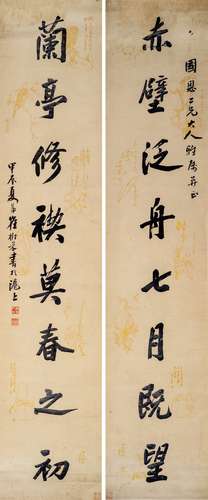 國恩二兄大人雅屬并正
赤壁泛舟七月既望
蘭亭修禊莫春之初
甲辰夏
書於滬上